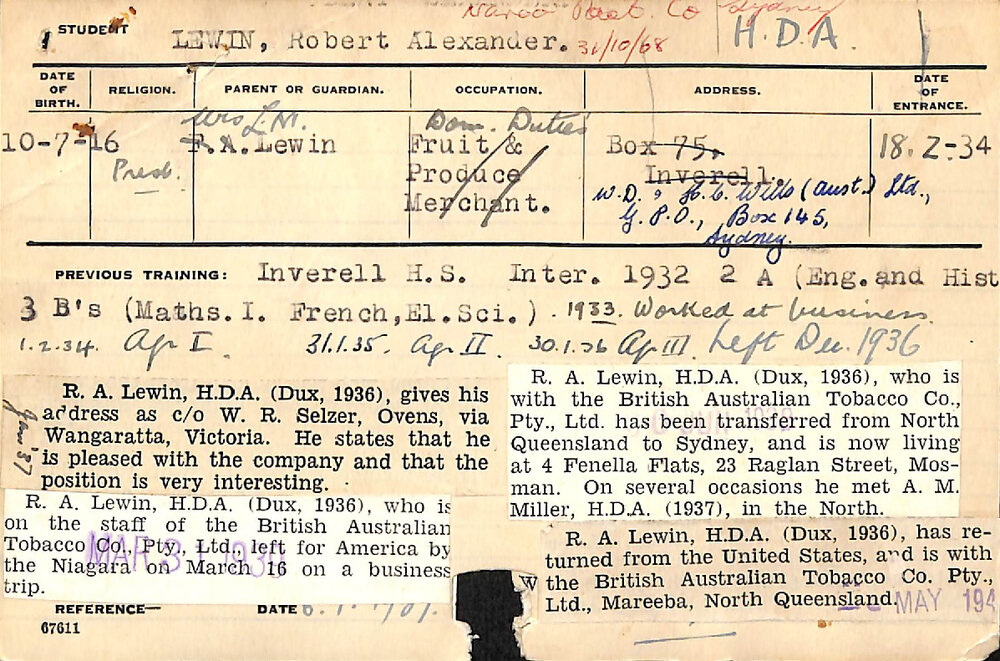 Naroo Past. Co Sydney
STUDENT LEWIN, Robert Alexander. 31/10/68 H.D.A.
DATE OF BIRTH. RELIGION. PARENT OR GUARDIAN. OCCUPATION. ADDRESS. DATE OF ENTRANCE.
Mrs L.M. Dom. Duties
10-7-16 F.A.Lewin Fruit & Box 75, 18.2-34
Presb. Produce Inverell.
Merchant. W.D. & H.O. Wills (Aust.) Ltd.,
G.P.O., Box 145,
Sydney.
PREVIOUS TRAINING: Inverell H.S. Inter. 1932 2 A (Eng.and Hist
3 B's (Maths.I. French,El.Sci.). 1933. Worked at business
1.2.34. Ag I. 31.1.35. Ag II. 30.1.36 Ag III. Left Dec. 1936
R. A. Lewin, H.D.A. (Dux, 1936), gives his
address as c/o W. R. Selzer, Ovens, via
Wangaratta, Victoria. He states that he
is pleased with the company and that the
position is very interesting.
Jan '37
R. A. Lewin, H.D.A. (Dux, 1936), who is
on the staff of the British Australian
Tobacco Co., Pty., Ltd., left for America by
the Niagara on March 16 on a business
trip.
MAR
R. A. Lewin, H.D.A. (Dux, 1936), who is
with the British Australian Tobacco Co.,
Pty., Ltd. has been transferred from North
Queensland to Sydney, and is now living
at 4 Fenella Flats, 23 Raglan Street, Mos-
man. On several occasions he met A. M.
Miller, H.D.A. (1937), in the North.
JUN
R. A. Lewin, H.D.A. (Dux, 1936), has re-
turned from the United States, and is with
W the British Australian Tobacco Co. Pty.,
Ltd., Mareeba, North Queensland.
MAY 194
REFERENCE— DATE
67611